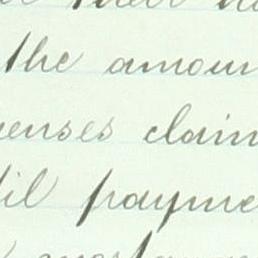 their
the amoun
penses claim
til payme